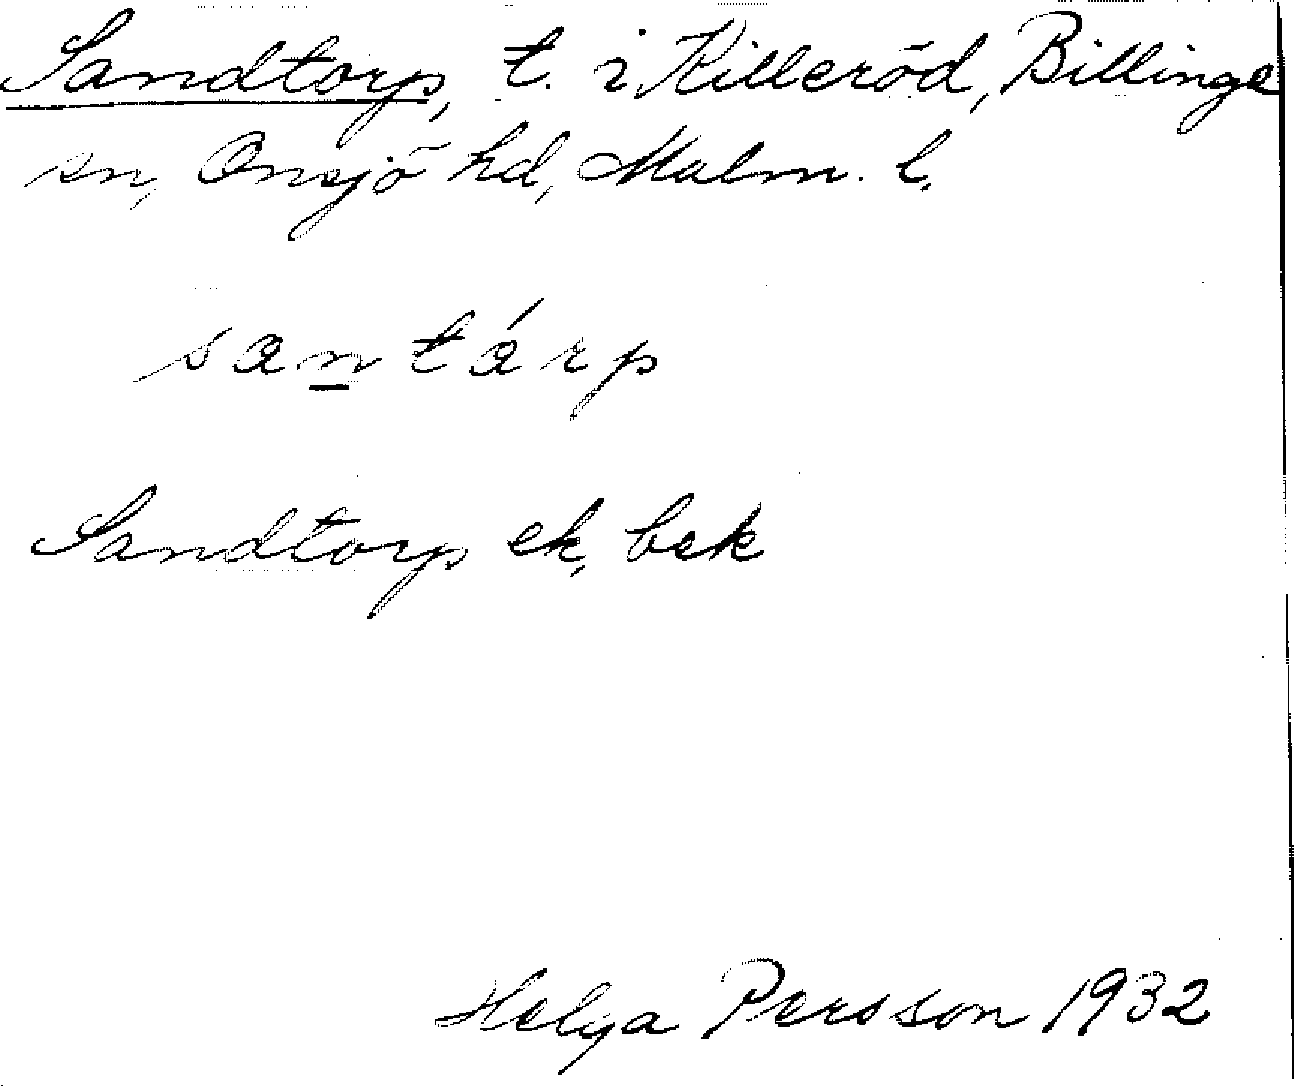 Sandtorp, t. i Killeröd, Billinge
sn, Onsjö hd, Malm. l.
santárp
Sandtorp ek. bek
Helga Persson 1932